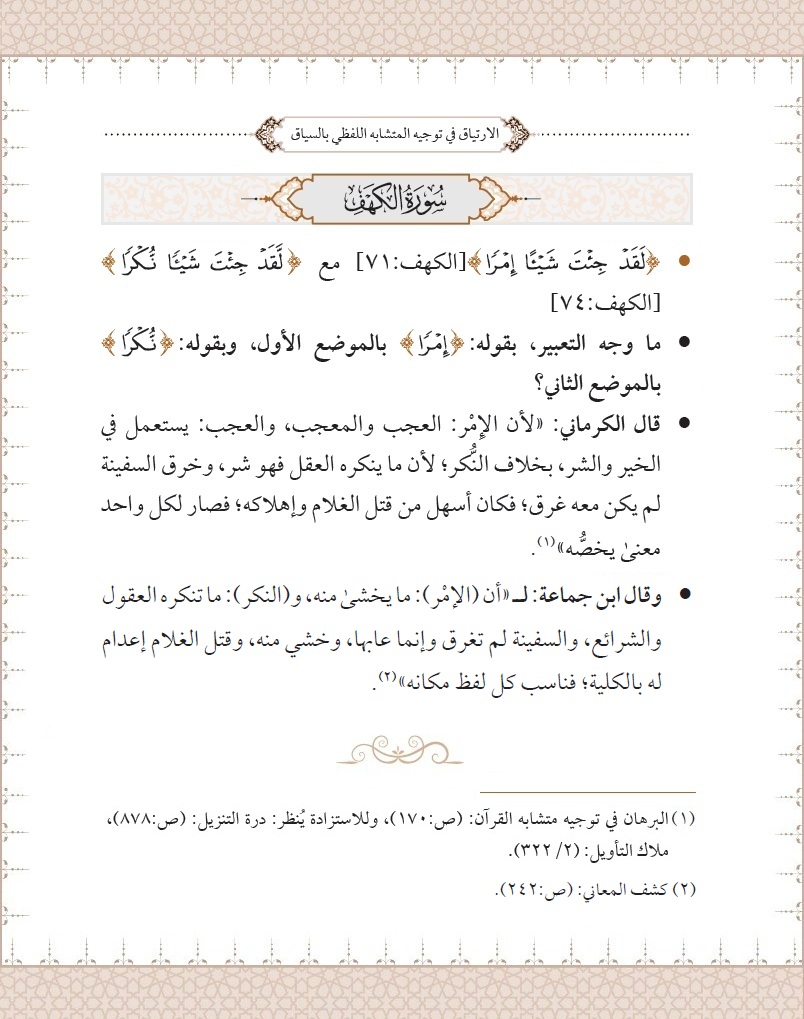 الارتياق في توجيه المتشابه اللفظي بالسياق
سُورَةُ الكَهْفِ
• ﴿لَقَدۡ جِئۡتَ شَيۡـًٔا إِمۡرٗا﴾[الكهف:٧١] مع ﴿لَّقَدۡ جِئۡتَ شَيۡـٔٗا نُّكۡرٗا﴾
[الكهف:٧٤]
• ما وجه التعبير، بقوله: ﴿إِمۡرٗا﴾ بالموضع الأول، وبقوله: ﴿نُّكۡرٗا﴾
بالموضع الثاني؟
• قال الكرماني: «لأن الإِمْر: العجب والمعجب، والعجب: يستعمل في
الخير والشر، بخلاف النُّكر؛ لأن ما ينكره العقل فهو شر، وخرق السفينة
لم يكن معه غرق؛ فكان أسهل من قتل الغلام وإهلاكه؛ فصار لكل واحد
معنىٰ يخصُّه»(١).
• وقال ابن جماعة: لــ «أن (الإمْر): ما يخشىٰ منه، و(النكر): ما تنكره العقول
والشرائع، والسفينة لم تغرق وإنما عابها، وخشي منه، وقتل الغلام إعدام
له بالكلية؛ فناسب كل لفظ مكانه»(٢).
(١) البرهان في توجيه متشابه القرآن: (ص:١٧٠)، وللاستزادة يُنظر: درة التنزيل: (ص:٨٧٨)،
ملاك التأويل: (٢/ ٣٢٢).
(٢) كشف المعاني: (ص:٢٤٢).